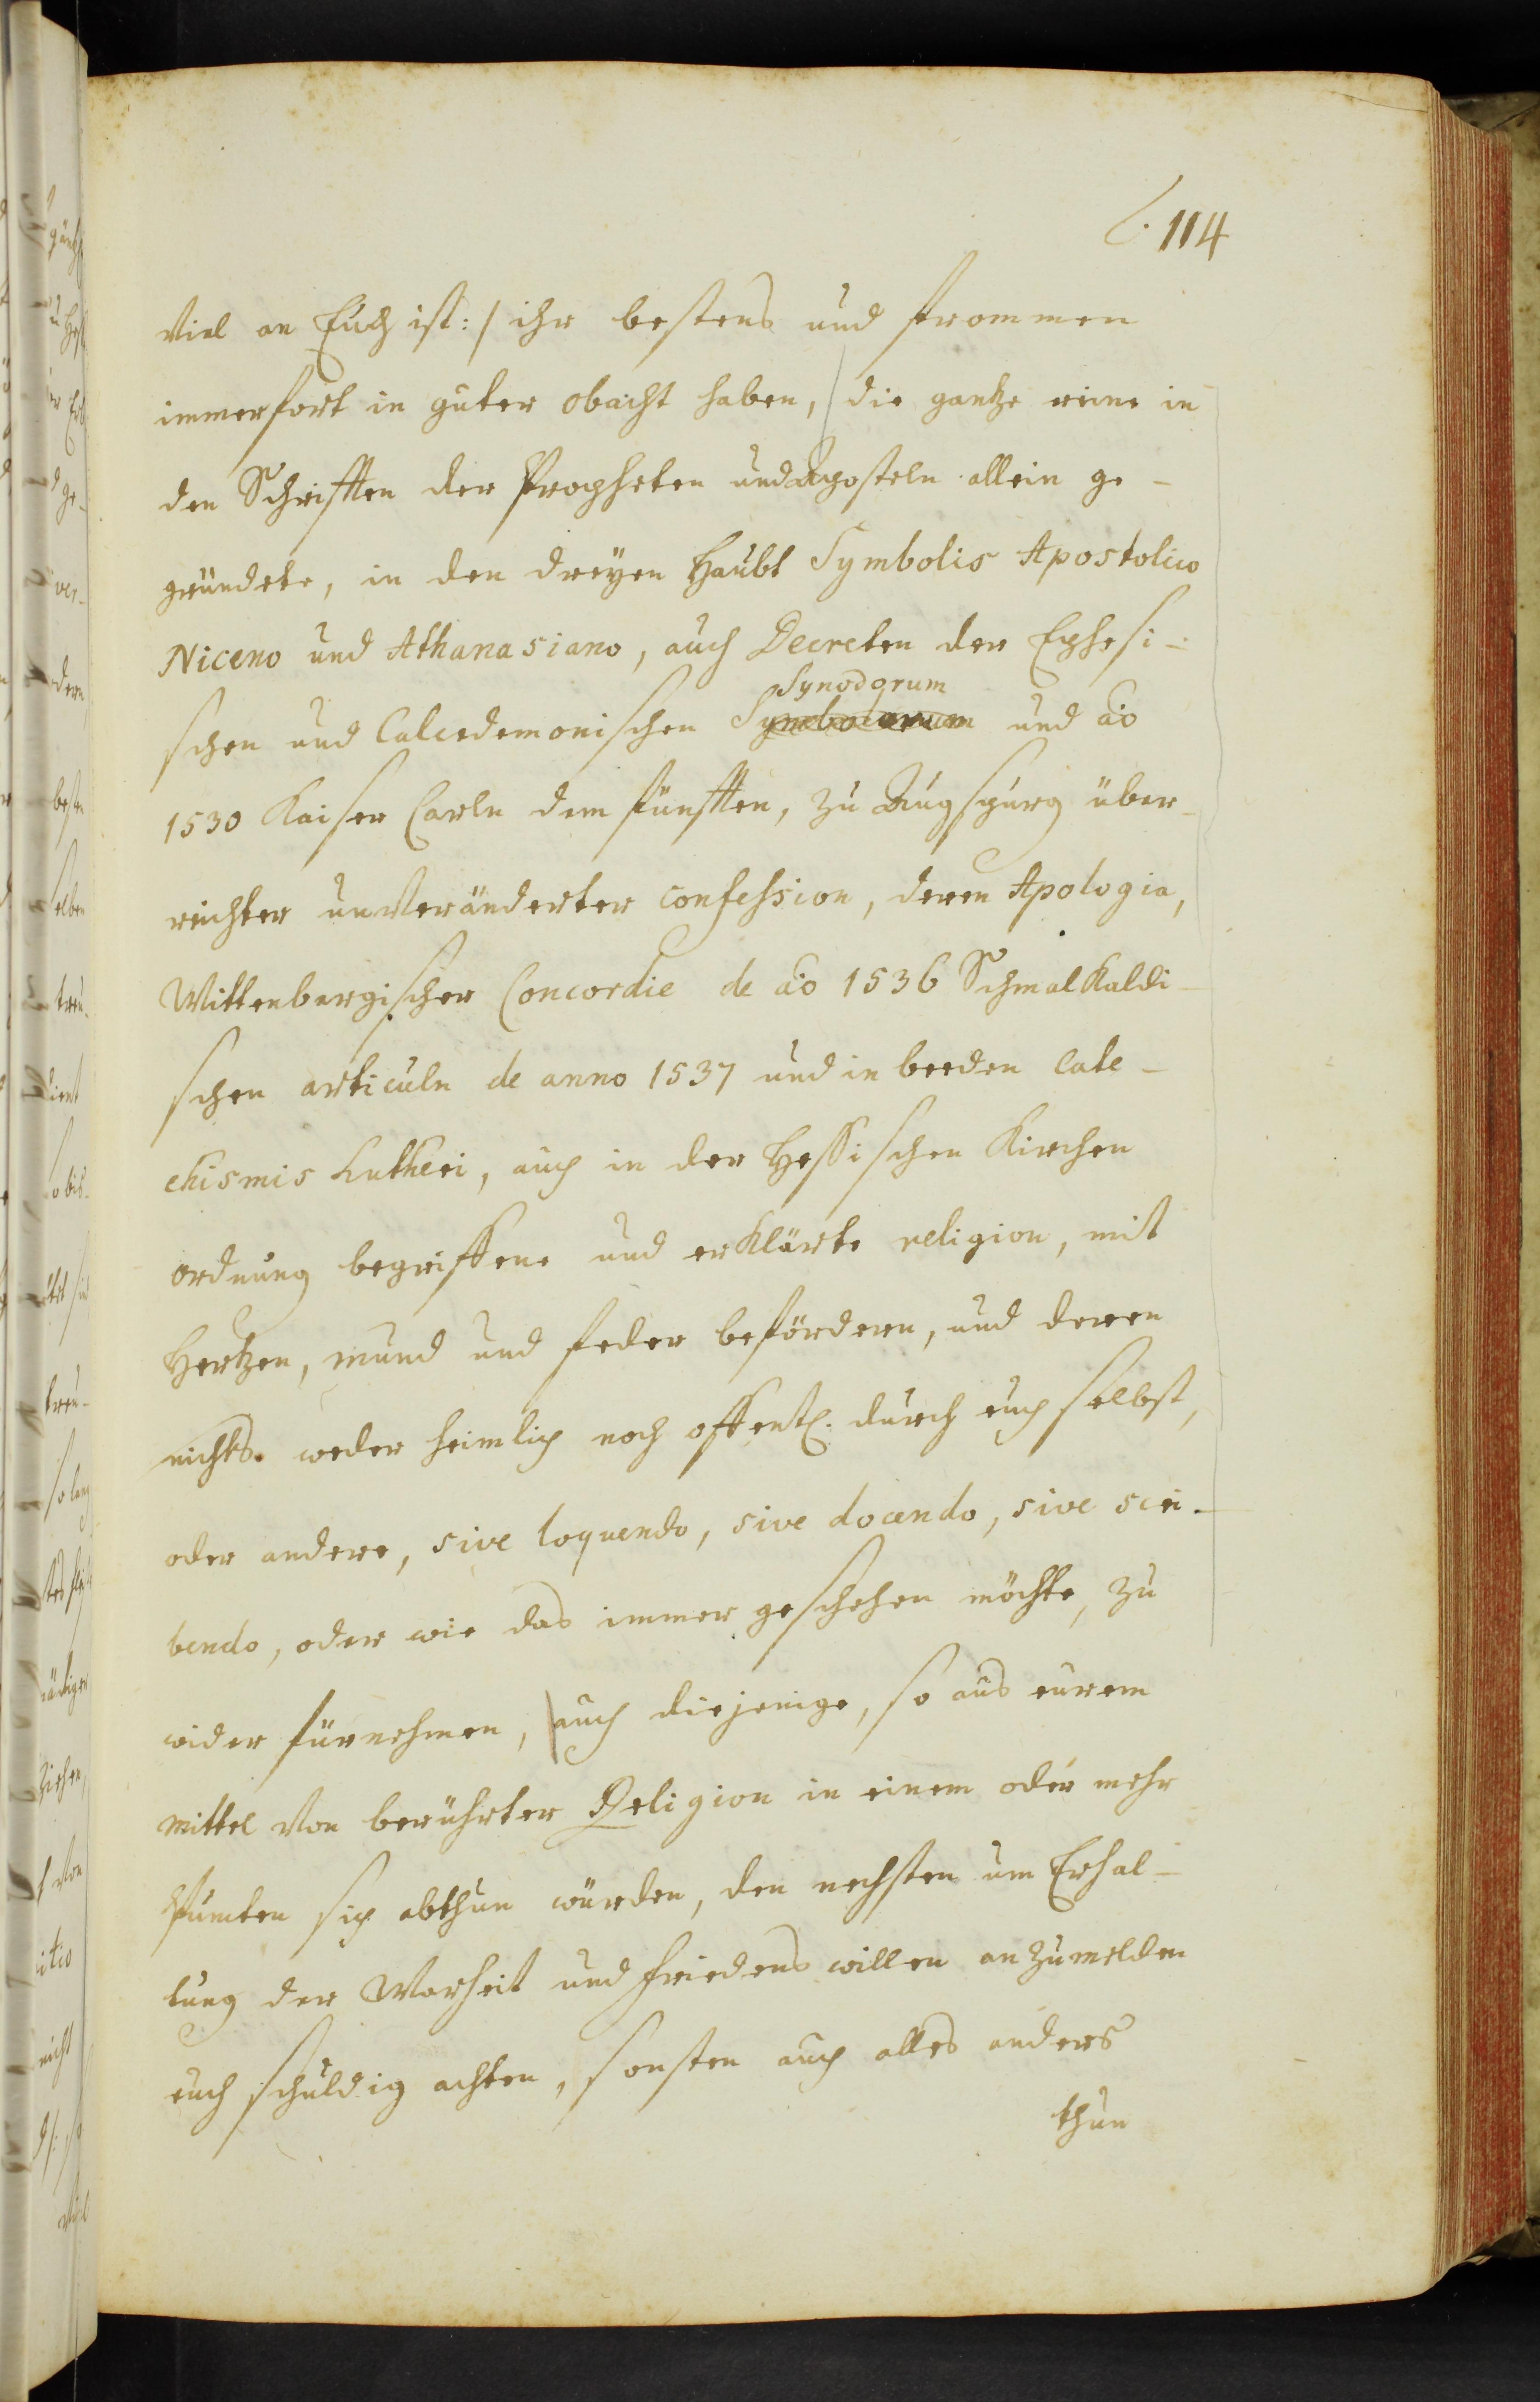 114
viel an Euch ist:/ ihr bestens und frommen
immerfort in guter obacht haben, die gantze reine in
den Schrifften der Propheten und Aposteln allein ge-
gründete, in den dreyen Haubt Symbolis Apostolico
Niceno und Athanasiano, auch Decreten der Ephesi-
Synodorum
schen und Calcedemonischen Symbolorum und ao
1530 Kaiser Carln dem fünfften, zu Augspurg über-
reichter unveränderter confession, deren Apologia,
Wittenbergischer Concordie de ao 1536 Schmalkaldi-
schen articuln de anno 1537 und in beeden Cate-
chismis Lutheri, auch in der Hessischen Kirchen
ordnung begriffene und erklärte religion, mit
Hertzen, mund und feder befördern, und deren
nichts weder heimlich noch offentl. durch euch selbst,
oder andere, sive loquendo, sive docendo, sive scri-
bendo, oder wie das immer geschehen möchte, zu
wider fürnehmen, auch diejenige, so aus eurem
mittel von berührter Religion in einem oder mehr
Puncten sich abthun würden, den nechsten um Erhal-
tung der Warheit und friedens willen anzumelden
euch schuldig achten, sonsten auch alles anders
thun